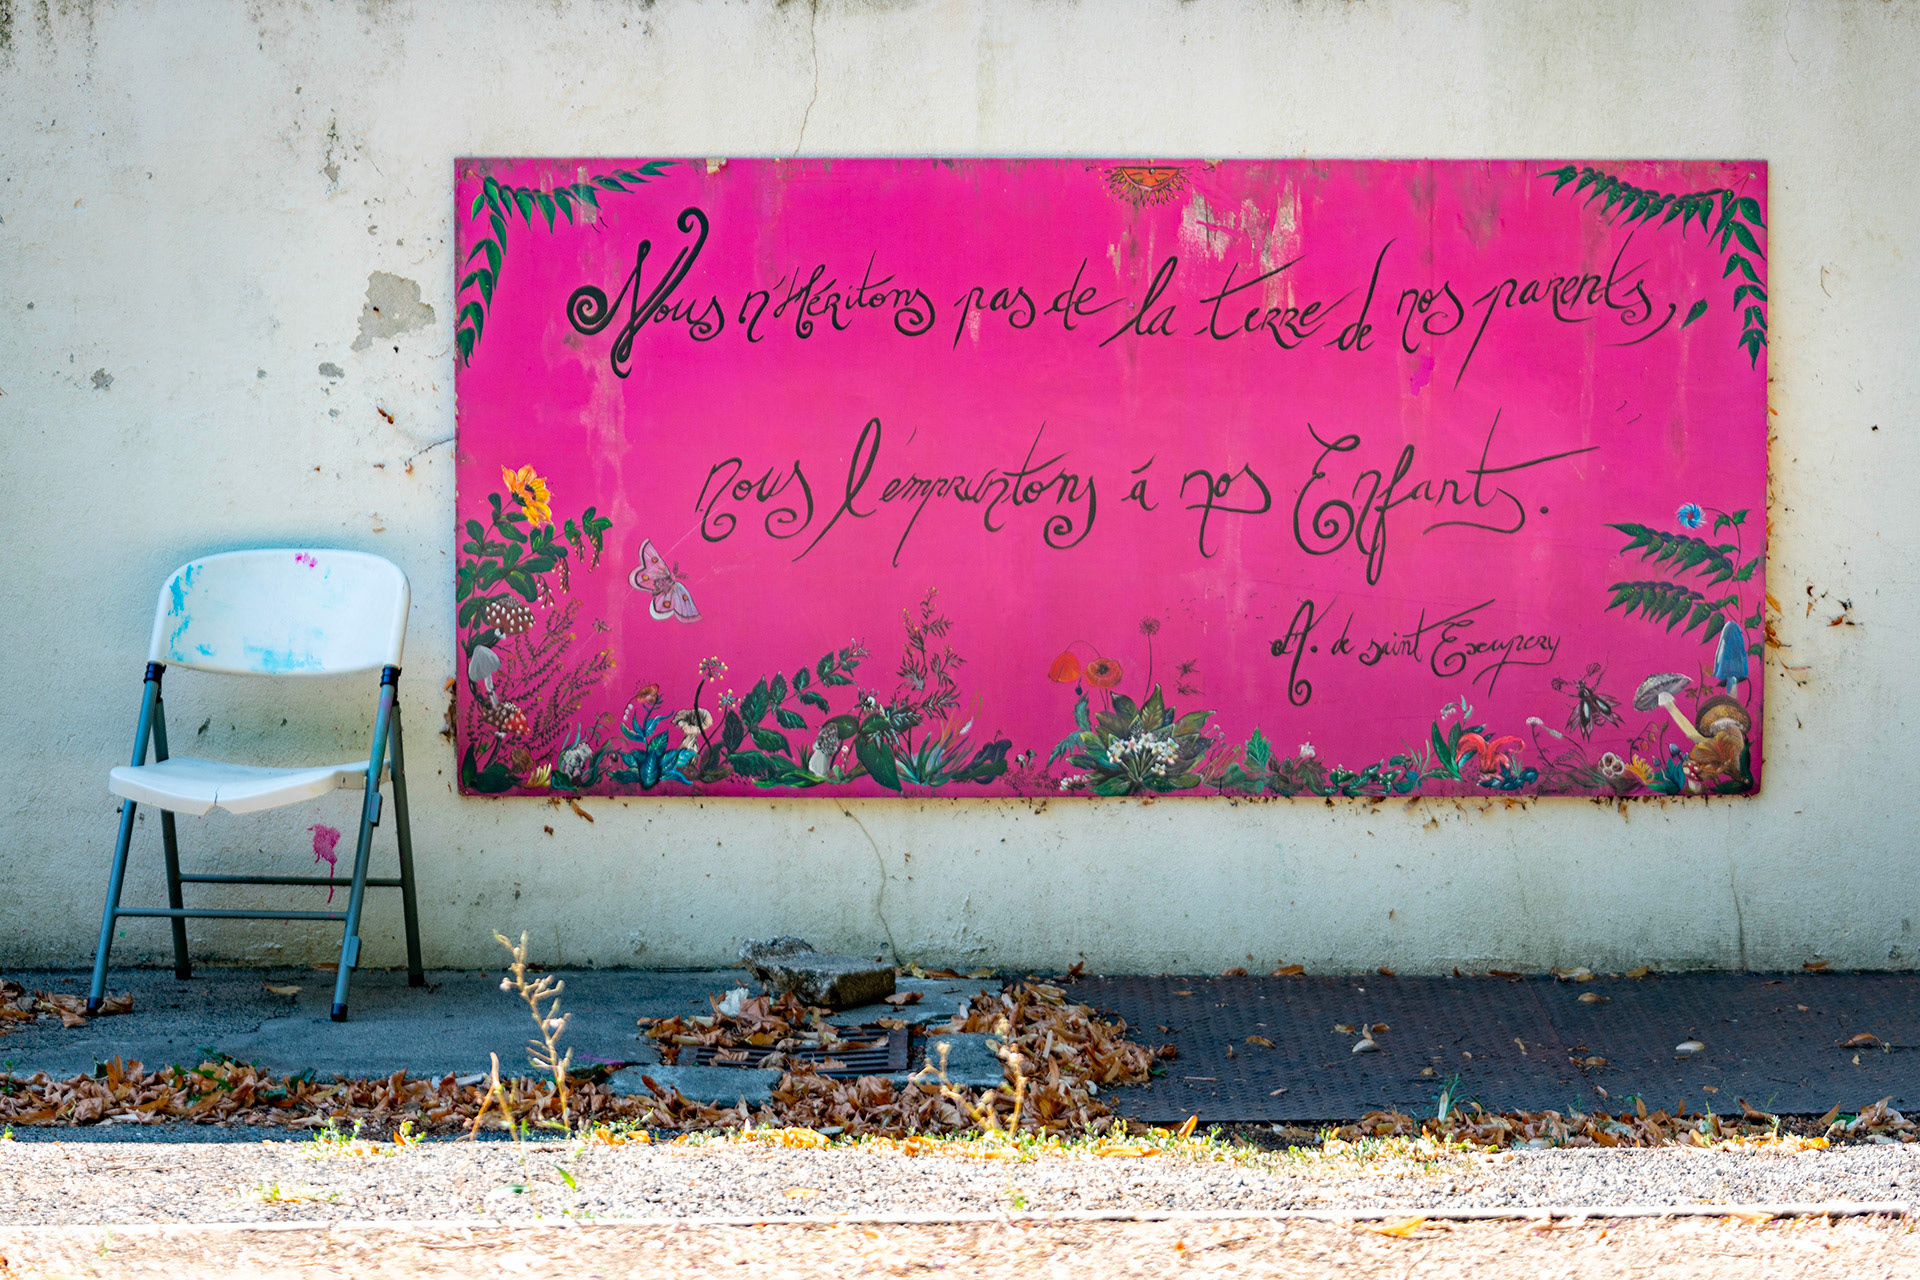 Nous n'Héritons pas de la terre de nos parents,
nous l'empruntons à nos Enfants.
A. de saint Exupery